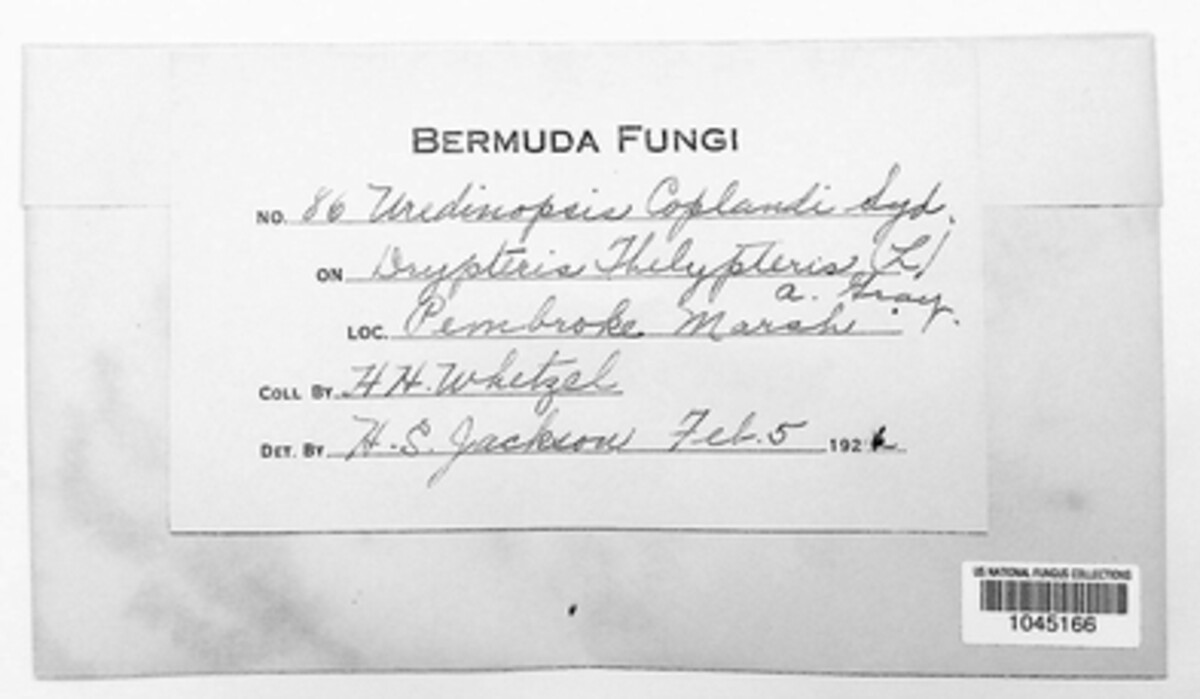 BERMUDA FUNGI
NO. 86 Uredinopsis Coplandi Syd.
ON Drypteris Thelypteris (L)
a. Gray.
LOC. Pembroke Marsh
COLL BY H H. Whetzel
DET. BY H. S. Jackson Feb. 5 1926
US NATIONAL FUNGUS COLLECTIONS
1045166